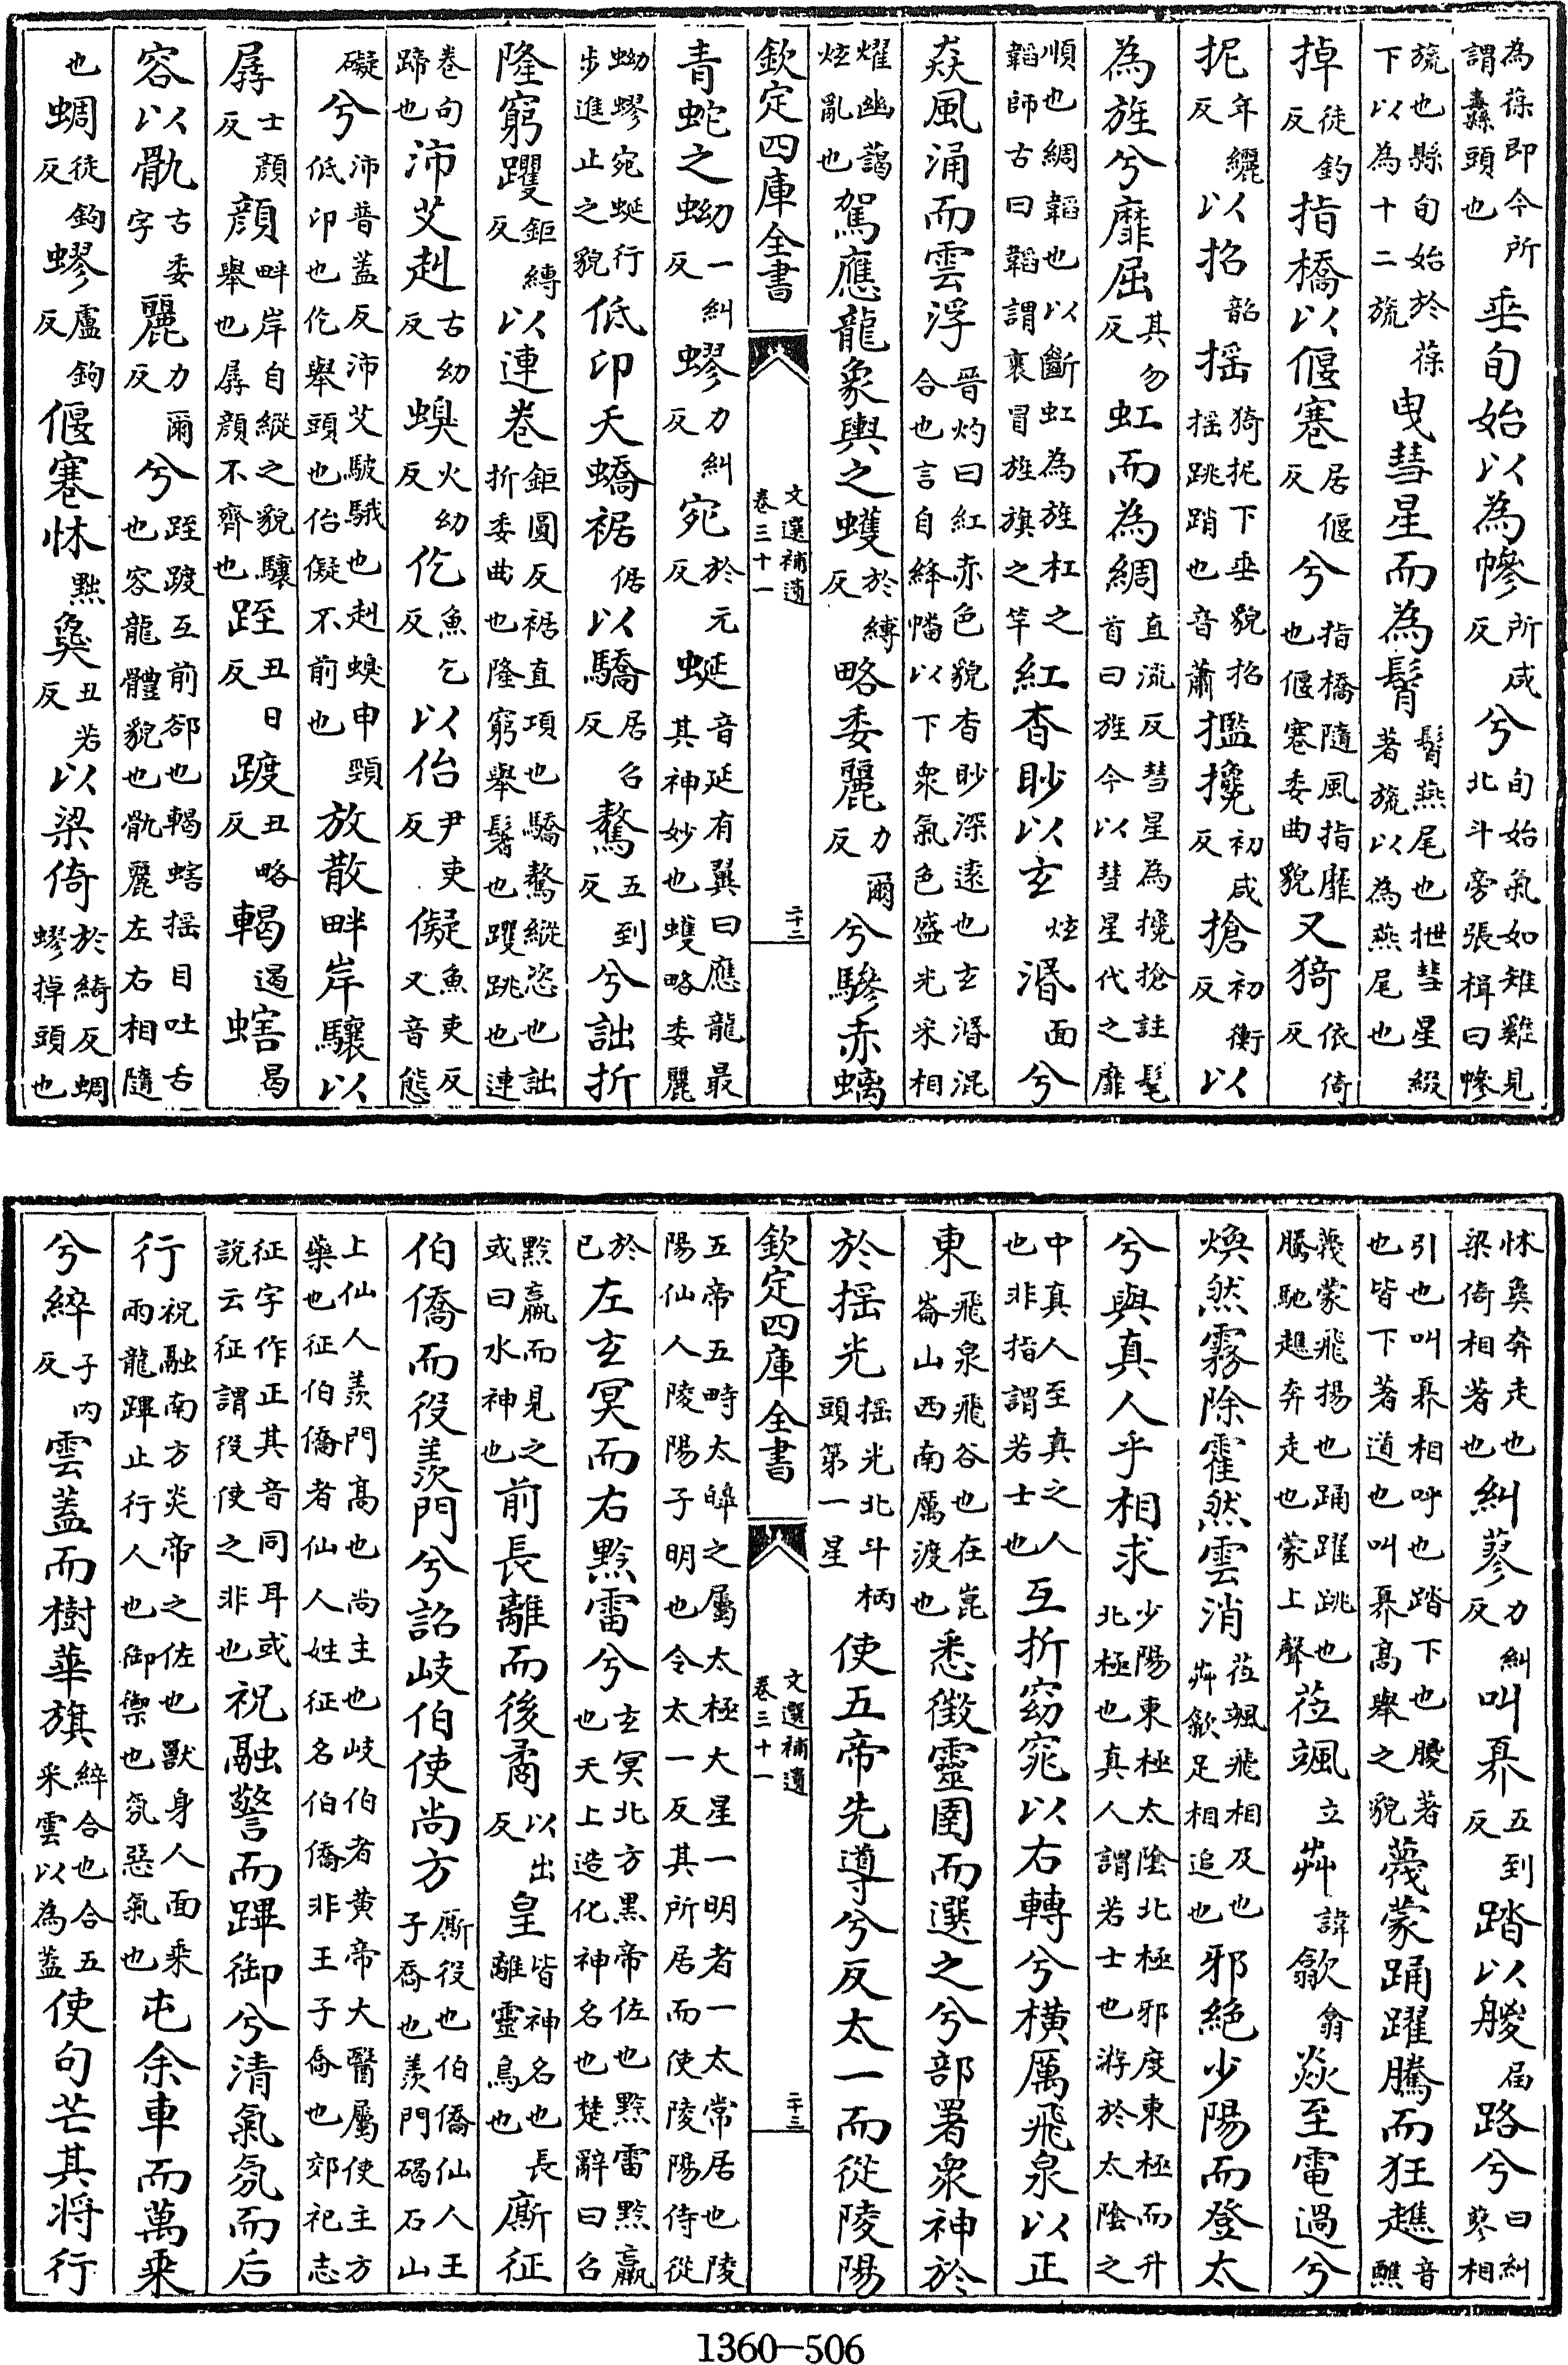 為葆即今所謂纛頭也垂旬始以為幓所咸反兮旬始氣如雄雞見北斗旁張楫曰幓
旒也縣旬始於葆下以為十二旒曳彗星而為髾髾燕尾也抴彗星綴著旒以為燕尾也
掉徒釣反指橋以偃蹇居偃反兮指橋隨風指靡也偃蹇委曲貌又猗依倚反
抳年纚反以招韶揺猗抳下垂貌招揺跳踃也音蕭攙初咸反搶初衡反以
為旌兮靡屈其勿反虹而為綢直流反彗星為攙搶註髦首曰旌今以彗星代之靡
順也綢韜也以斷虹為旌杠之韜師古曰韜謂裹冒旌旗之竿紅杳眇以玄炫湣面兮
猋風涌而雲浮晋灼曰紅赤色貌杳眇深遠也玄湣混合也言自絳幡以下衆氣色盛光采相
燿幽藹炫亂也駕應龍象輿之蠖於縛反略委麗力爾反兮驂赤螭
欽定四庫全書 文選補遺 卷三十一 二十二
青蛇之蚴一糾反蟉力糾反宛於元反蜒音延有翼曰應龍最其神妙也蠖略委麗
蚴蟉宛蜒行步進止之貌低卬夭蟜裾倨以驕居召反驁五到反兮詘折
隆窮躩鉅縛反以連卷鉅圓反裾直項也驕驁縱恣也詘折委曲也隆窮舉鬐也躩跳也連
卷句蹄也沛艾赳古幼反螑火幼反仡魚乞反以佁尹吏反儗魚吏反又音態
礙兮沛普蓋反沛艾駊騀也赳螑申頸低卬也仡舉頭也佁儗不前也放散畔岸驤以
孱士顔反顔畔岸自縱之貌驤舉也孱顔不齊也跮丑日反踱丑略反輵遏螛曷
容以骫古委字麗力爾反兮跮踱互前郤也輵螛揺目吐舌也容龍體貌也骫麗左右相隨
也蜩徒鉤反蟉盧鉤反偃蹇怵黜㚟丑若反以梁倚於綺反蜩蟉掉頭也
怵㚟奔走也梁倚相著也糾蓼力糾反叫奡五到反踏以艐届路兮曰糾蓼相
引也叫奡相呼也踏下也艐著也皆下著道也叫奡高舉之貌蔑蒙踊躍騰而狂趭音醮
蔑蒙飛揚也踊躍跳也騰馳趭奔走也蒙上聲莅颯立卉諱歙翕焱至電過兮
煥然霧除霍然雲消莅颯飛相及也卉歙足相追也邪絶少陽而登太
兮與真人乎相求少陽東極太陰北極邪度東極而升北極也真人謂若士也游於太陰之
中真人至真之人也非指謂若士也互折窈窕以右轉兮横厲飛泉以正
東飛泉飛谷也在崑崙山西南厲渡也悉徵靈圉而選之兮部署衆神於
於揺光揺光北斗柄頭第一星使五帝先導兮反太一而從陵陽
欽定四庫全書 文選補遺 卷三十一 二十三
五帝五畤太皥之屬太極大星一明者一太常居也陵陽仙人陵陽子明也令太一反其所居而使陵陽侍從
於已左玄冥而右黔雷兮玄冥北方黑帝佐也黔雷黔羸也天上造化神名也楚辭曰召
黔羸而見之或曰水神也前長離而後矞以出反皇皆神名也長離靈鳥也廝征
伯僑而役羨門兮詔岐伯使尚方廝役也伯僑仙人王子喬也羨門碣石山
上仙人羨門高也尚主也岐伯者黄帝大醫屬使主方藥也征伯僑者仙人姓征名伯僑非王子喬也郊祀志
征字作正其音同耳或説云征謂役使之非也祝融警而蹕御兮清氣氛而后
行祝融南方炎帝之佐也獸身人面乘兩龍蹕止行人也御禦也氛惡氣也屯余車而萬乘
兮綷子内反雲蓋而樹華旗綷合也合五采雲以為葢使句芒其將行
1360—506